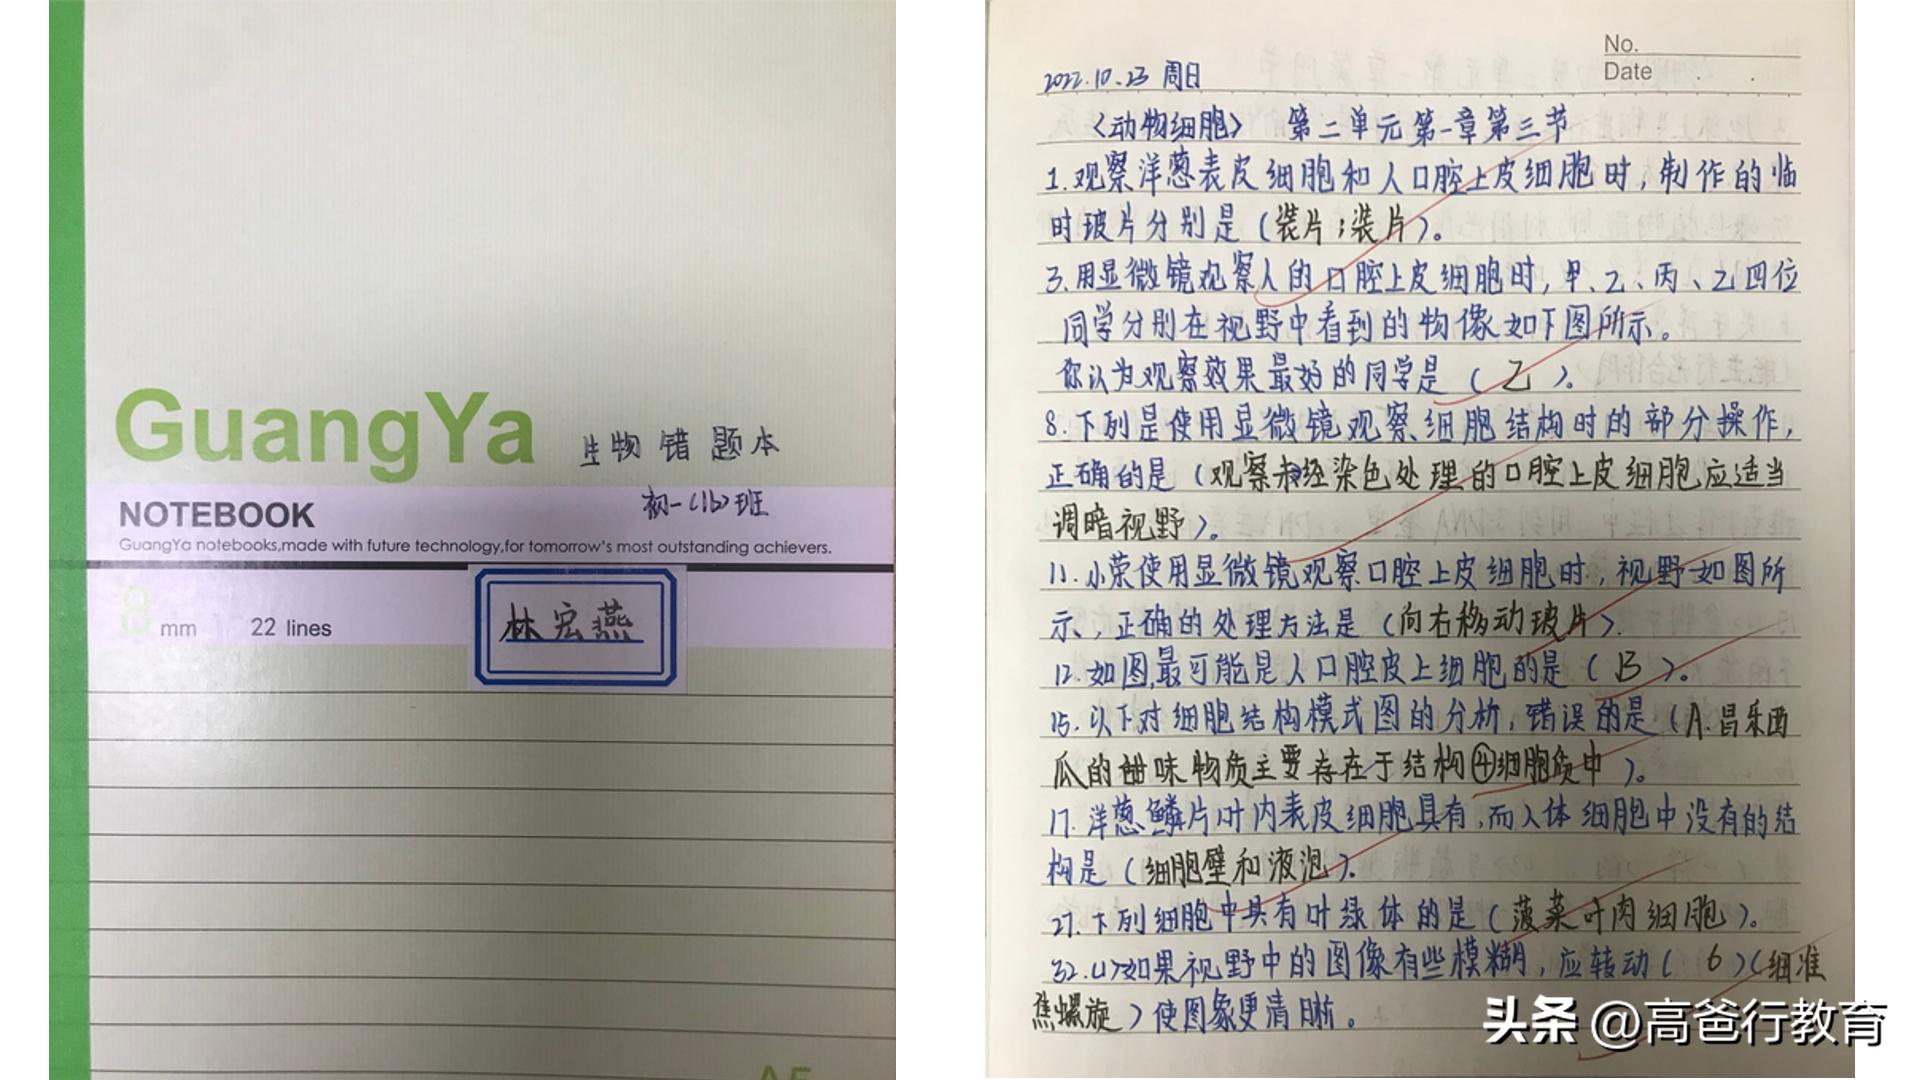 GuangYa
生物错题本
初一(16)班
NOTEBOOK
GuangYa notebooks,made with future technology,for tomorrow's most outstanding achievers.
8mm 22 lines
林宏燕
A5
No.
Date
2022.10.23 周日
《动物细胞》 第二单元第一章第三节
1.观察洋葱表皮细胞和人口腔上皮细胞时,制作的临
时玻片分别是(装片;装片)。
3.用显微镜观察人的口腔上皮细胞时,甲、乙、丙、乙四位
同学分别在视野中看到的物像如下图所示。
你认为观察效果最好的同学是( 乙 )。
8.下列是使用显微镜观察细胞结构时的部分操作,
正确的是(观察未经染色处理的口腔上皮细胞应适当
调暗视野)。
11.小荣使用显微镜观察口腔上皮细胞时,视野如图所
示,正确的处理方法是(向右移动玻片).
12.如图,最可能是人口腔皮上细胞的是( B )。
15.以下对细胞结构模式图的分析,错误的是(A.昌乐西
瓜的甜味物质主要存在于结构④细胞质中)。
17.洋葱鳞片叶内表皮细胞具有,而人体细胞中没有的结
构是(细胞壁和液泡)。
27.下列细胞中具有叶绿体的是(菠菜叶肉细胞)。
32.(1)如果视野中的图像有些模糊,应转动( 6 )(细准
焦螺旋)使图象更清晰。
头条 @高爸行教育